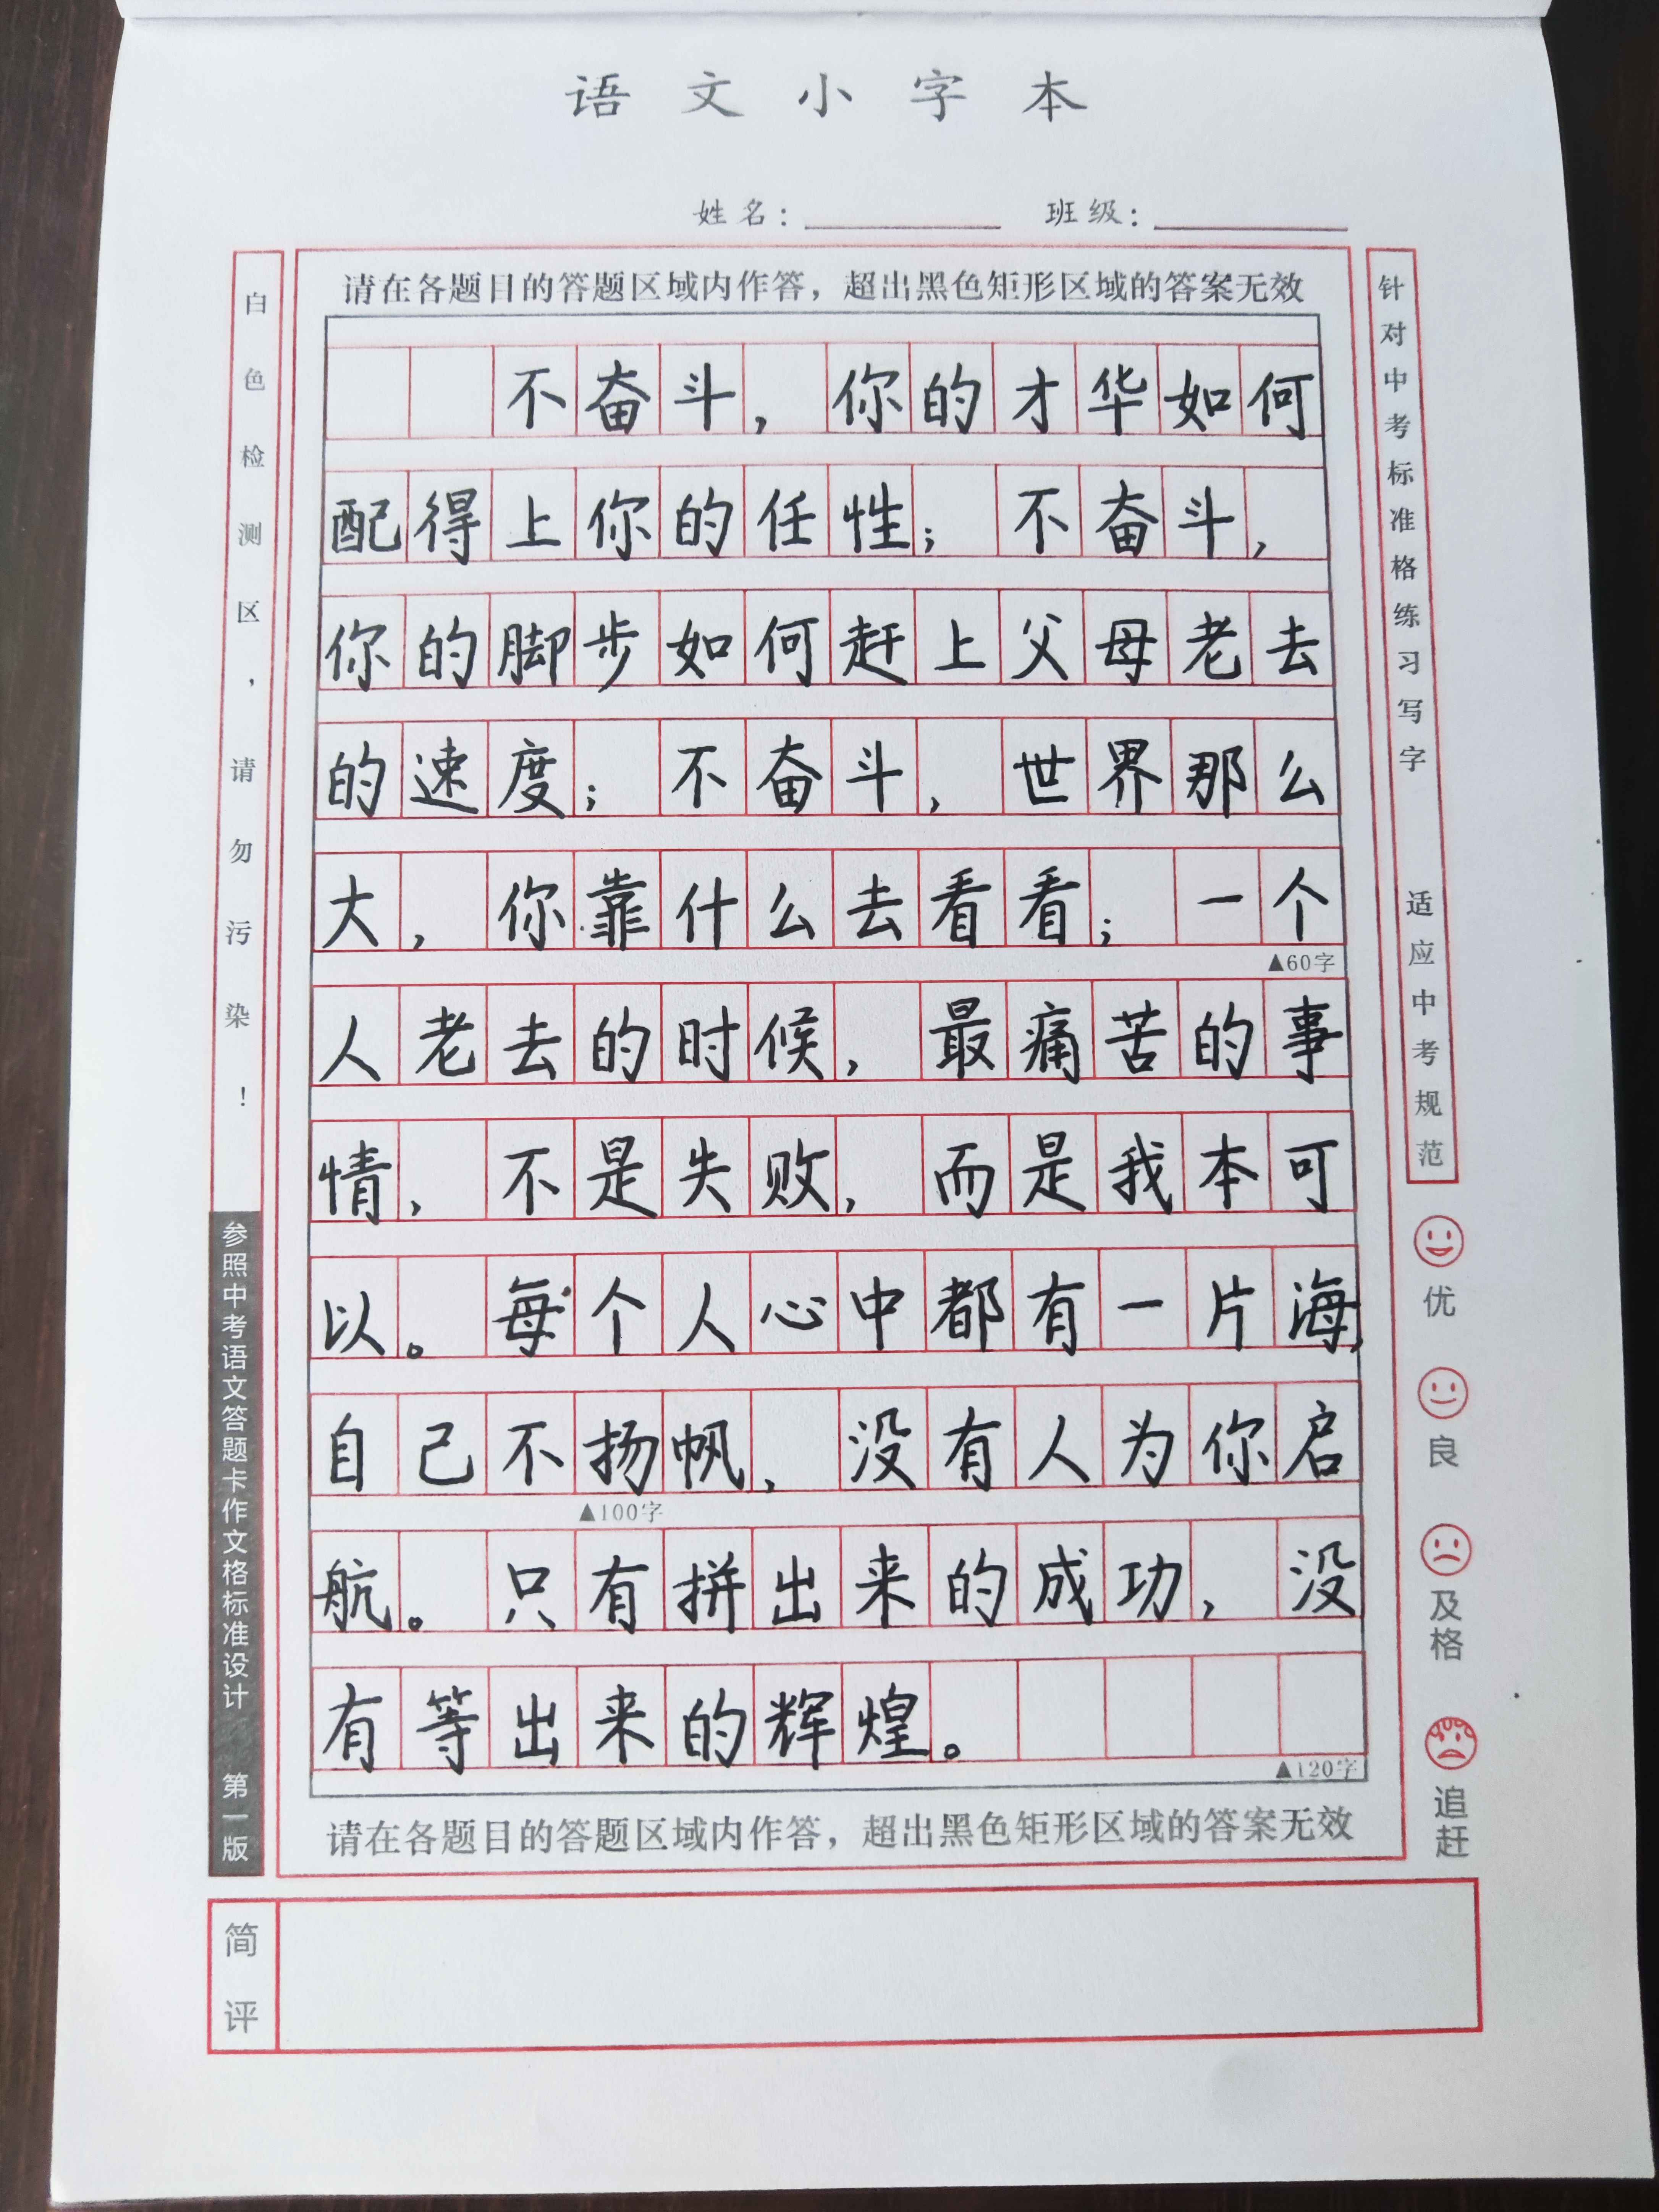 语文小字本
姓名： 班级：
请在各题目的答题区域内作答，超出黑色矩形区域的答案无效
不奋斗，你的才华如何
配得上你的任性；不奋斗，
你的脚步如何赶上父母老去
的速度；不奋斗，世界那么
大，你靠什么去看看；一个
▲60字
人老去的时候，最痛苦的事
情，不是失败，而是我本可
以。每个人心中都有一片海，
自己不扬帆，没有人为你启
▲100字
航。只有拼出来的成功，没
有等出来的辉煌。
▲120字
请在各题目的答题区域内作答，超出黑色矩形区域的答案无效
白色检测区，请勿污染！
参照中考语文答题卡作文格标准设计 第一版
针对中考标准格练习写字 适应中考规范
优
良
及格
追赶
简评